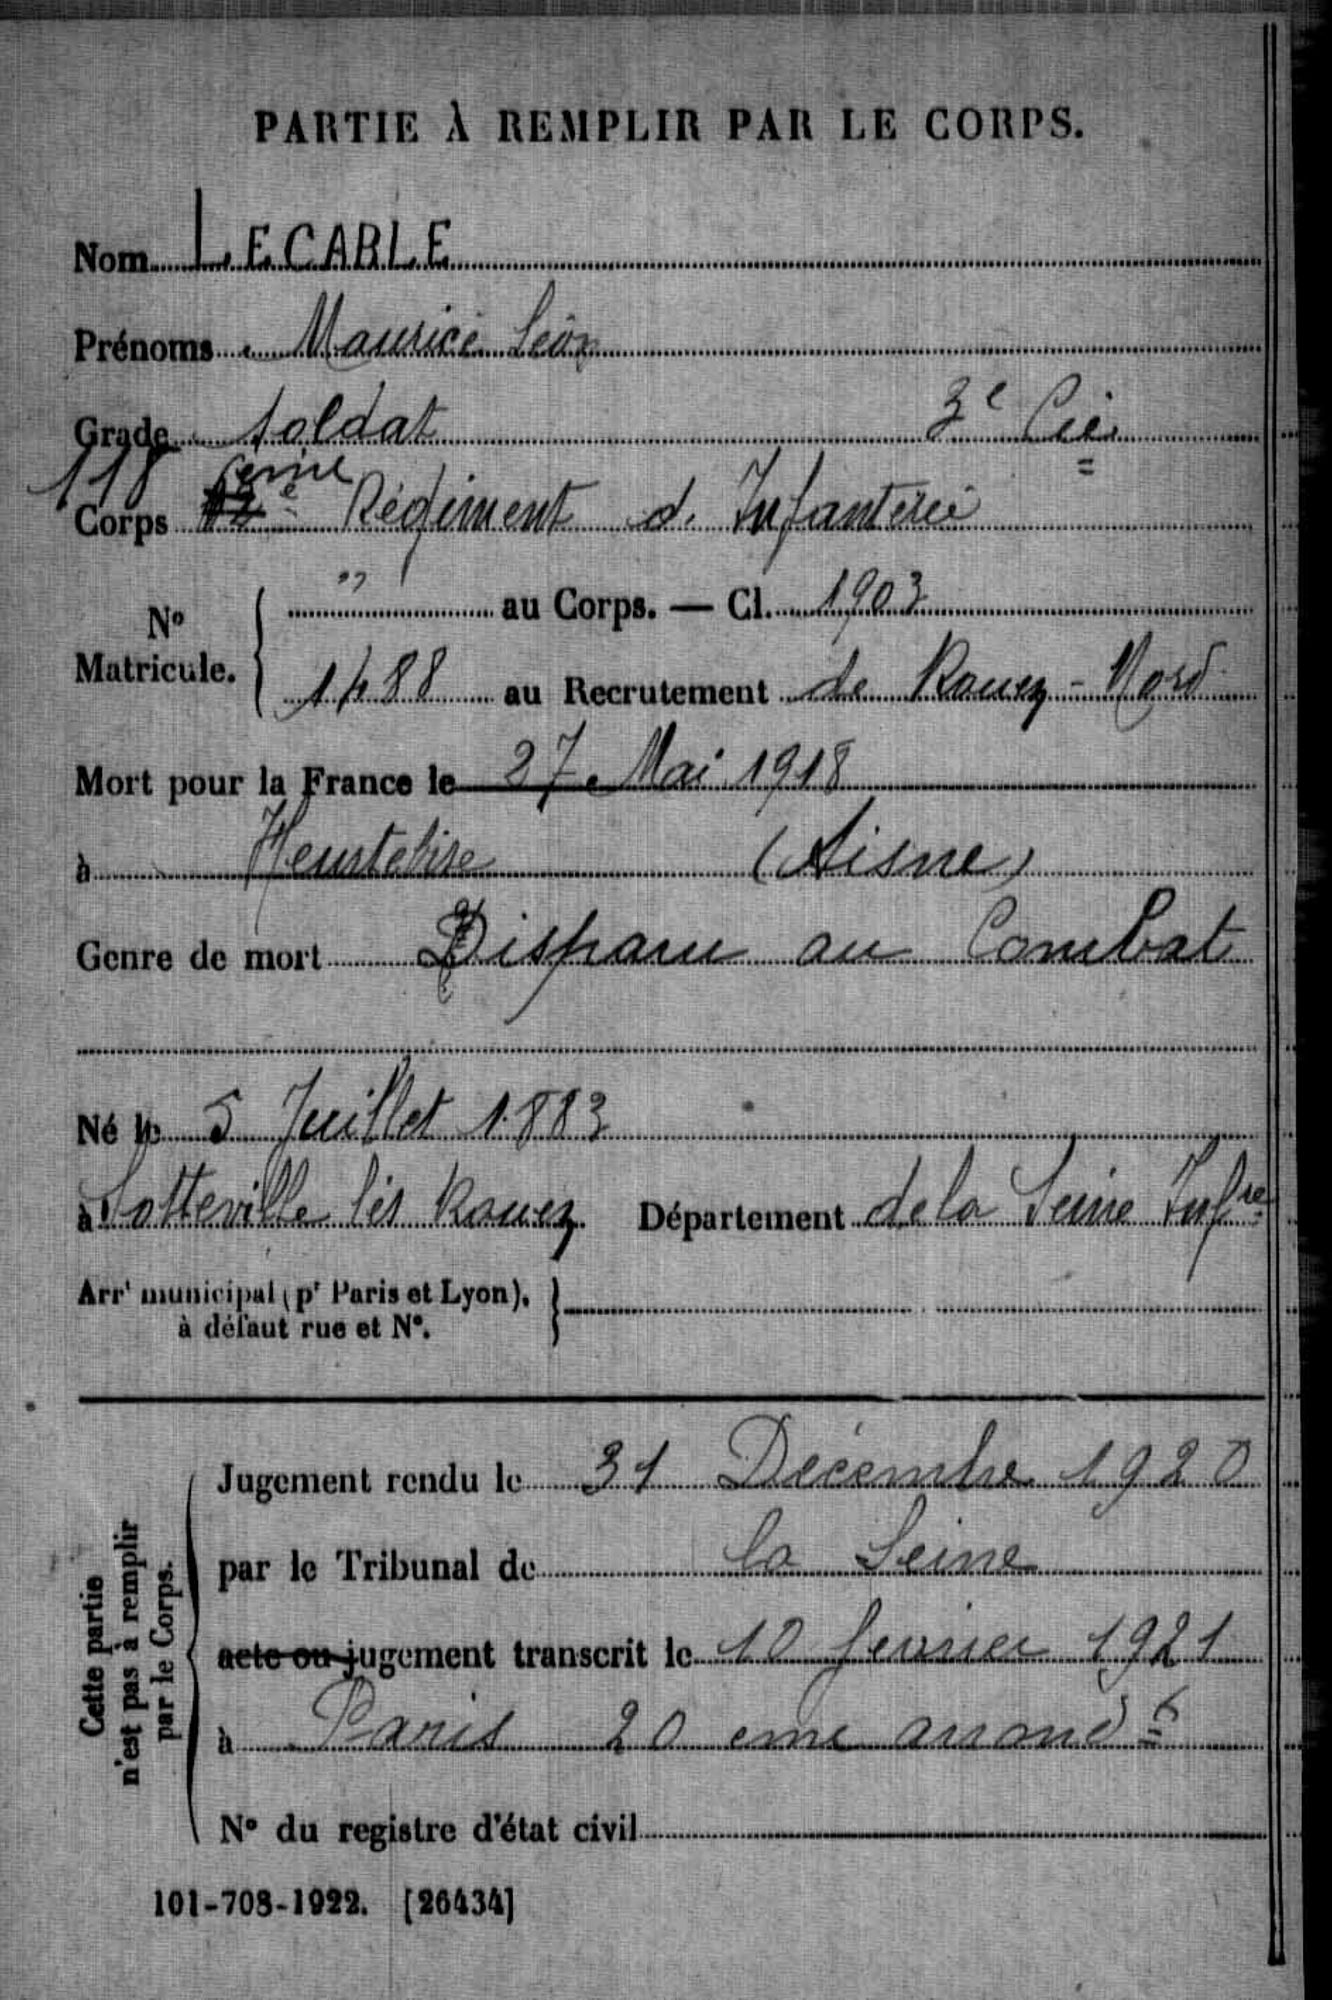 PARTIE À REMPLIR PAR LE CORPS.
Nom LECABLE
Prénoms Maurice Léon
Grade soldat 3e Cie
118 eme
Corps Régiment d'Infanterie
No Matricule. " au Corps. — Cl. 1903
1488 au Recrutement de Rouen-Nord
Mort pour la France le 27 Mai 1918
à Heurtebise (Aisne)
Genre de mort Disparu au Combat
Né le 5 Juillet 1883
à Sotteville lès Rouen Département de la Seine Infre
Arrt municipal (pr Paris et Lyon),
à défaut rue et No.
Cette partie
n'est pas à remplir
par le Corps.
Jugement rendu le 31 Décembre 1920
par le Tribunal de la Seine
acte ou jugement transcrit le 10 février 1921
à Paris 20 eme arrondt
No du registre d'état civil
101-708-1922. [26434]